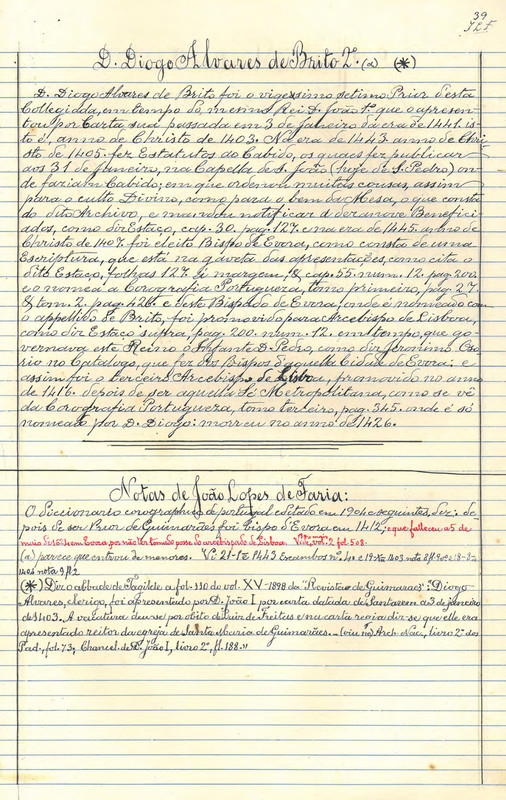 39
J L F
D. Diogo Alvares de Brito 2º. (a) (*)
D. Diogo Alvares de Brito foi o vigessimo setimo Prior d'esta
Collegiada, em tempo do mesmo Rei D. João 1º que o apresen-
tou por Carta sua passada em 3 de Janeiro da era de 1441. is-
to é, anno de Christo de 1403. Na era de 1443. anno de Chri-
sto de 1405. fez Estatutos do Cabido, os quaes fez publicar
aos 31 de Janeiro, na Capella de S. João (hoje de S. Pedro) on-
de faziam Cabido; em que ordenou muitas cousas, assim
para o culto Divino, como para o bem da Mesa, o que consta
do dito Archivo, e mandou notificar a dezanove Benefici-
ados, como diz Estaço, cap. 30. pag. 127. e na era de 1445. anno de
Christo de 1407. foi eleito Bispo de Evora, como consta de uma
Escriptura, que está na gaveta das apresentações, como cita o
dito Estaço, folhas 127. á margem, & cap. 55. num. 12. pag. 200.
e o nomea a Corografia Portugueza, tomo primeiro, pag. 27.
& tom. 2. pag. 426. e d'este Bispado de Evora, onde é nomeado com
o appellido de Brito, foi promovido para Arcebispo de Lisboa,
como diz Estaço supra, pag. 200. num. 12. em tempo, que go-
vernava este Reino o Infante D. Pedro, como diz Jeronimo Oso-
rio no Catalogo, que fez dos Bispos d'aquella Cidade de Evora: e
assim foi o terceiro Arcebispo de Lisboa, promovido no anno
de 1416. depois de ser aquella Sé Metropolitana, como se vê
da Corografia Portugueza, tomo terceiro, pag. 345. onde é só
nomeado por D. Diogo: morreu no anno de 1426.
Notas de João Lopes de Faria:
O Diccionario corographico de portugal editado em 1904 e seguintes, diz: de-
pois de ser Prior de Guimarães foi bispo d'Evora em 1412; e que falleceu a 5 de
maio de 1544 em Evora por não ter tomado posse do arcebispado de Lisboa. Vide vol. 2 fol. 508.
(a) parece que entrou de menores. Vi 21-1º 1443
(*) Diz o abbade de Tagilde a fol. 110 do vol. XV-1898 da "Revista de Guimarães": Diogo
Alvares, clerigo, foi apresentado por D. João I por carta datada de Santarem a 3 de janeiro
de 1403. A vacatura deu-se por obito de Luiz de Freitas e na carta regia diz-se que elle era
apresentado reitor da egreja de Santa Maria de Guimarães. - (viu no) Arch. Nac., livro 2º dos
Pad., fol. 73; Chancel. de D. João I, livro 2º, fl. 188."